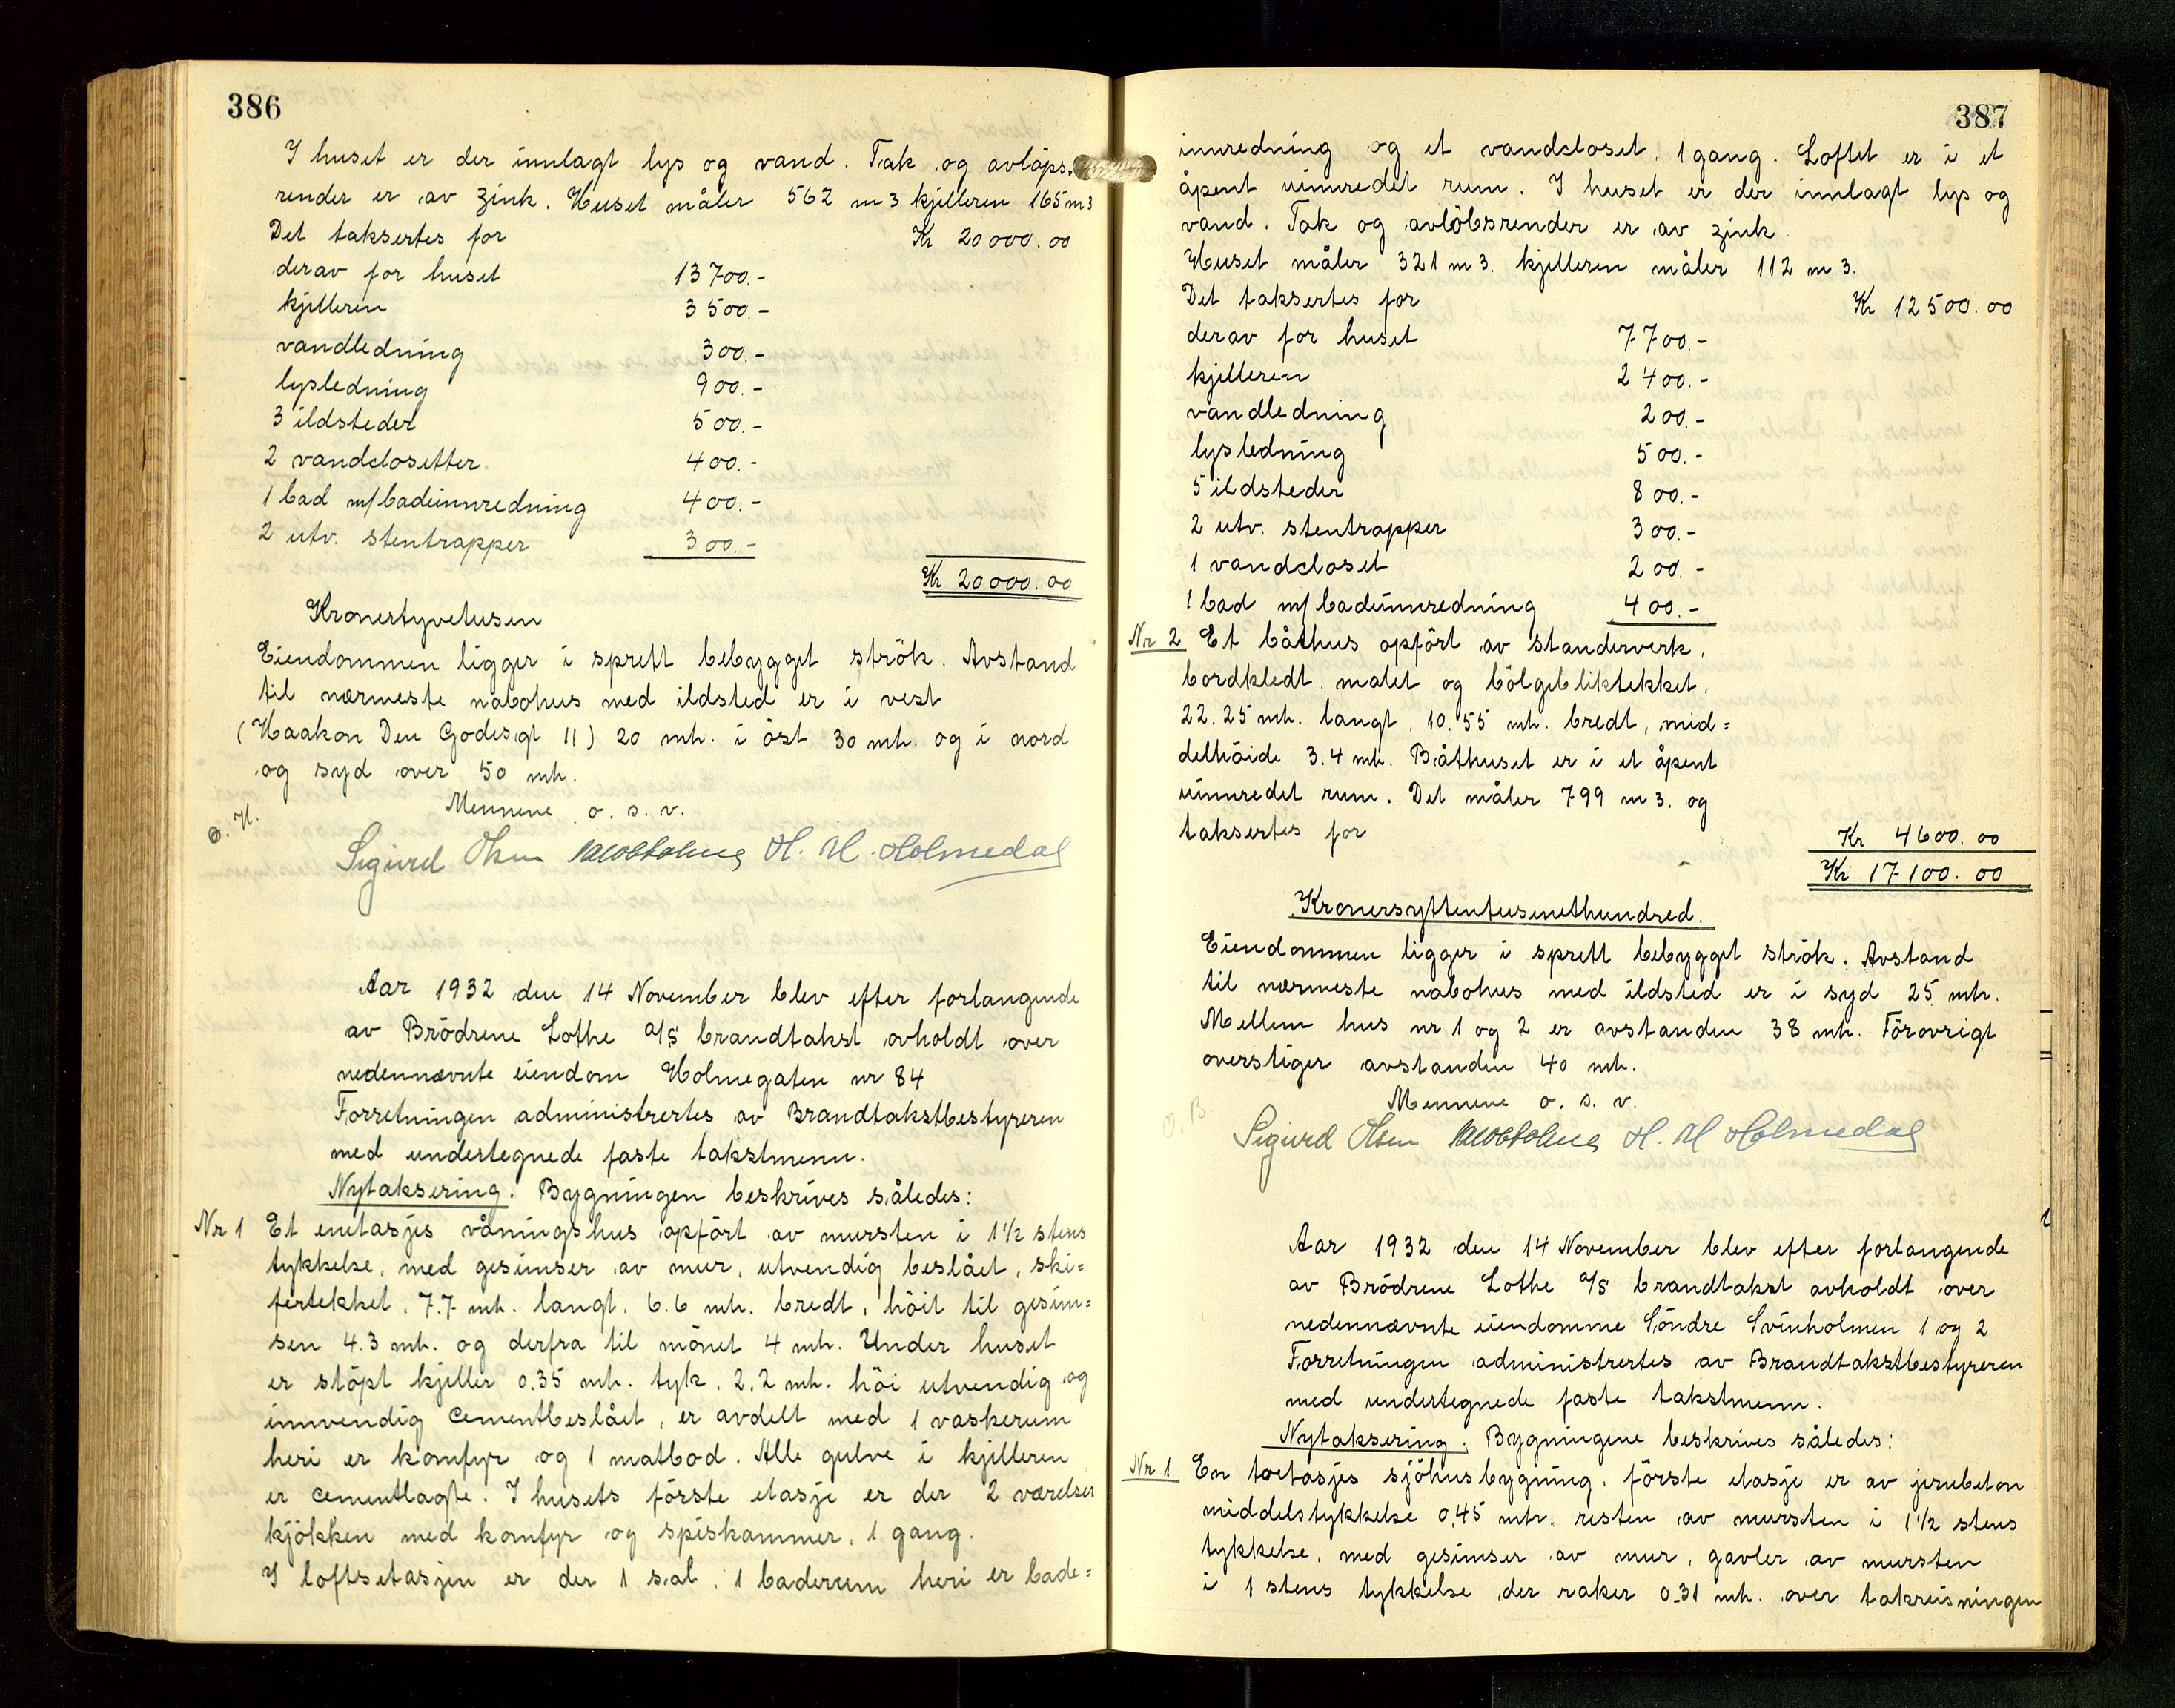 386
I huset er der innlagt lys og vand. Tak og avløps.
render er av zink. Huset måler 562 m3 kjelleren 165 m3
Det taksertes for Kr 20000.00
derav for huset 13700.-
kjelleren 3500.-
vandledning 300.-
lysledning 900.-
3 ildsteder 500.-
2 vandclosetter 400.-
1 bad m/ badeinnredning 400.-
2 utv. stentrapper 300.-
Kr 20000.00
Kronertyvetusen
Eiendommen ligger i sprett bebygget strök. Avstand
til nærmeste nabohus med ildsted er i vest
(Haakon Den Godesgt 11) 20 mtr. i öst 30 mtr. og i nord
og syd over 50 mtr.
Mennene o. s. v.
O. H.
Sigurd Olsen H. M. Holmedal
Aar 1932 den 14 November blev efter forlangende
av Brödrene Lothe A/S brandtakst avholdt over
nedennævnte eiendom Holmegaten nr 84
Forretningen administrertes av Brandtakstbestyreren
med undertegnede faste takstmenn.
Nytaksering. Bygningen beskrives således:
Nr 1 Et enetasjes våningshus opfört av mursten i 1 1/2 stens
tykkelse, med gesimser av mur, utvendig beslået, ski=
fertekket. 7.7 mtr. langt. 6.6 mtr. bredt, höit til gesim=
sen 4.3 mtr. og derfra til mönet 4 mtr. Under huset
er stöpt kjeller 0.35 mtr. tyk. 2.2 mtr. höi utvendig og
innvendig cementbeslået, er avdelt med 1 vaskerum
heri er komfyr og 1 matbod. Alle gulve i kjelleren
er cementlagte. I husets förste etasje er der 2 værelser
kjökken med komfyr og spiskammer, 1 gang.
I loftsetasjen er der 1 sal, 1 baderum heri er bade=
387
innredning og et vandcloset, 1 gang. Loftet er i et
åpent uinnredet rum. I huset er der innlagt lys og
vand. Tak og avlöbsrender er av zink
Huset måler 321 m3. kjelleren måler 112 m3.
Det taksertes for Kr 12500.00
derav for huset 7700.-
kjelleren 2400.-
vandledning 200.-
lysledning 500.-
5 ildsteder 800.-
2 utv. stentrapper 300.-
1 vandcloset 200.-
1 bad m/ badeinnredning 400.-
Nr 2 Et båthus opfört av standerverk.
bordkledt, malet og bölgebliktekket.
22.25 mtr. langt, 10.55 mtr. bredt, mid=
delhöide 3.4 mtr. Båthuset er i et åpent
uinnredet rum. Det måler 799 m3. og
taksertes for Kr 4600.00
Kr 17100.00
Kronersyttentusenethundred.
Eiendommen ligger i sprett bebygget strök. Avstand
til nærmeste nabohus med ildsted er i syd 25 mtr.
Mellem hus nr 1 og 2 er avstanden 38 mtr. Forövrigt
overstiger avstanden 40 mtr.
Mennene o. s. v.
O. B
Sigurd Olsen H. M Holmedal
Aar 1932 den 14 November blev efter forlangende
av Brödrene Lothe A/S brandtakst avholdt over
nedennævnte eiendomme Söndre Svinholmen 1 og 2
Forretningen administrertes av Brandtakstbestyreren
med undertegnede faste takstmenn.
Nytaksering. Bygningene beskrives således:
Nr 1 En toetasjes sjöhusbygning. förste etasje er av jernbeton
middelstykkelse 0,45 mtr. resten av mursten i 1 1/2 stens
tykkelse, med gesimser av mur, gavler av mursten
i 1 stens tykkelse der raker 0.31 mtr. over takreisningen